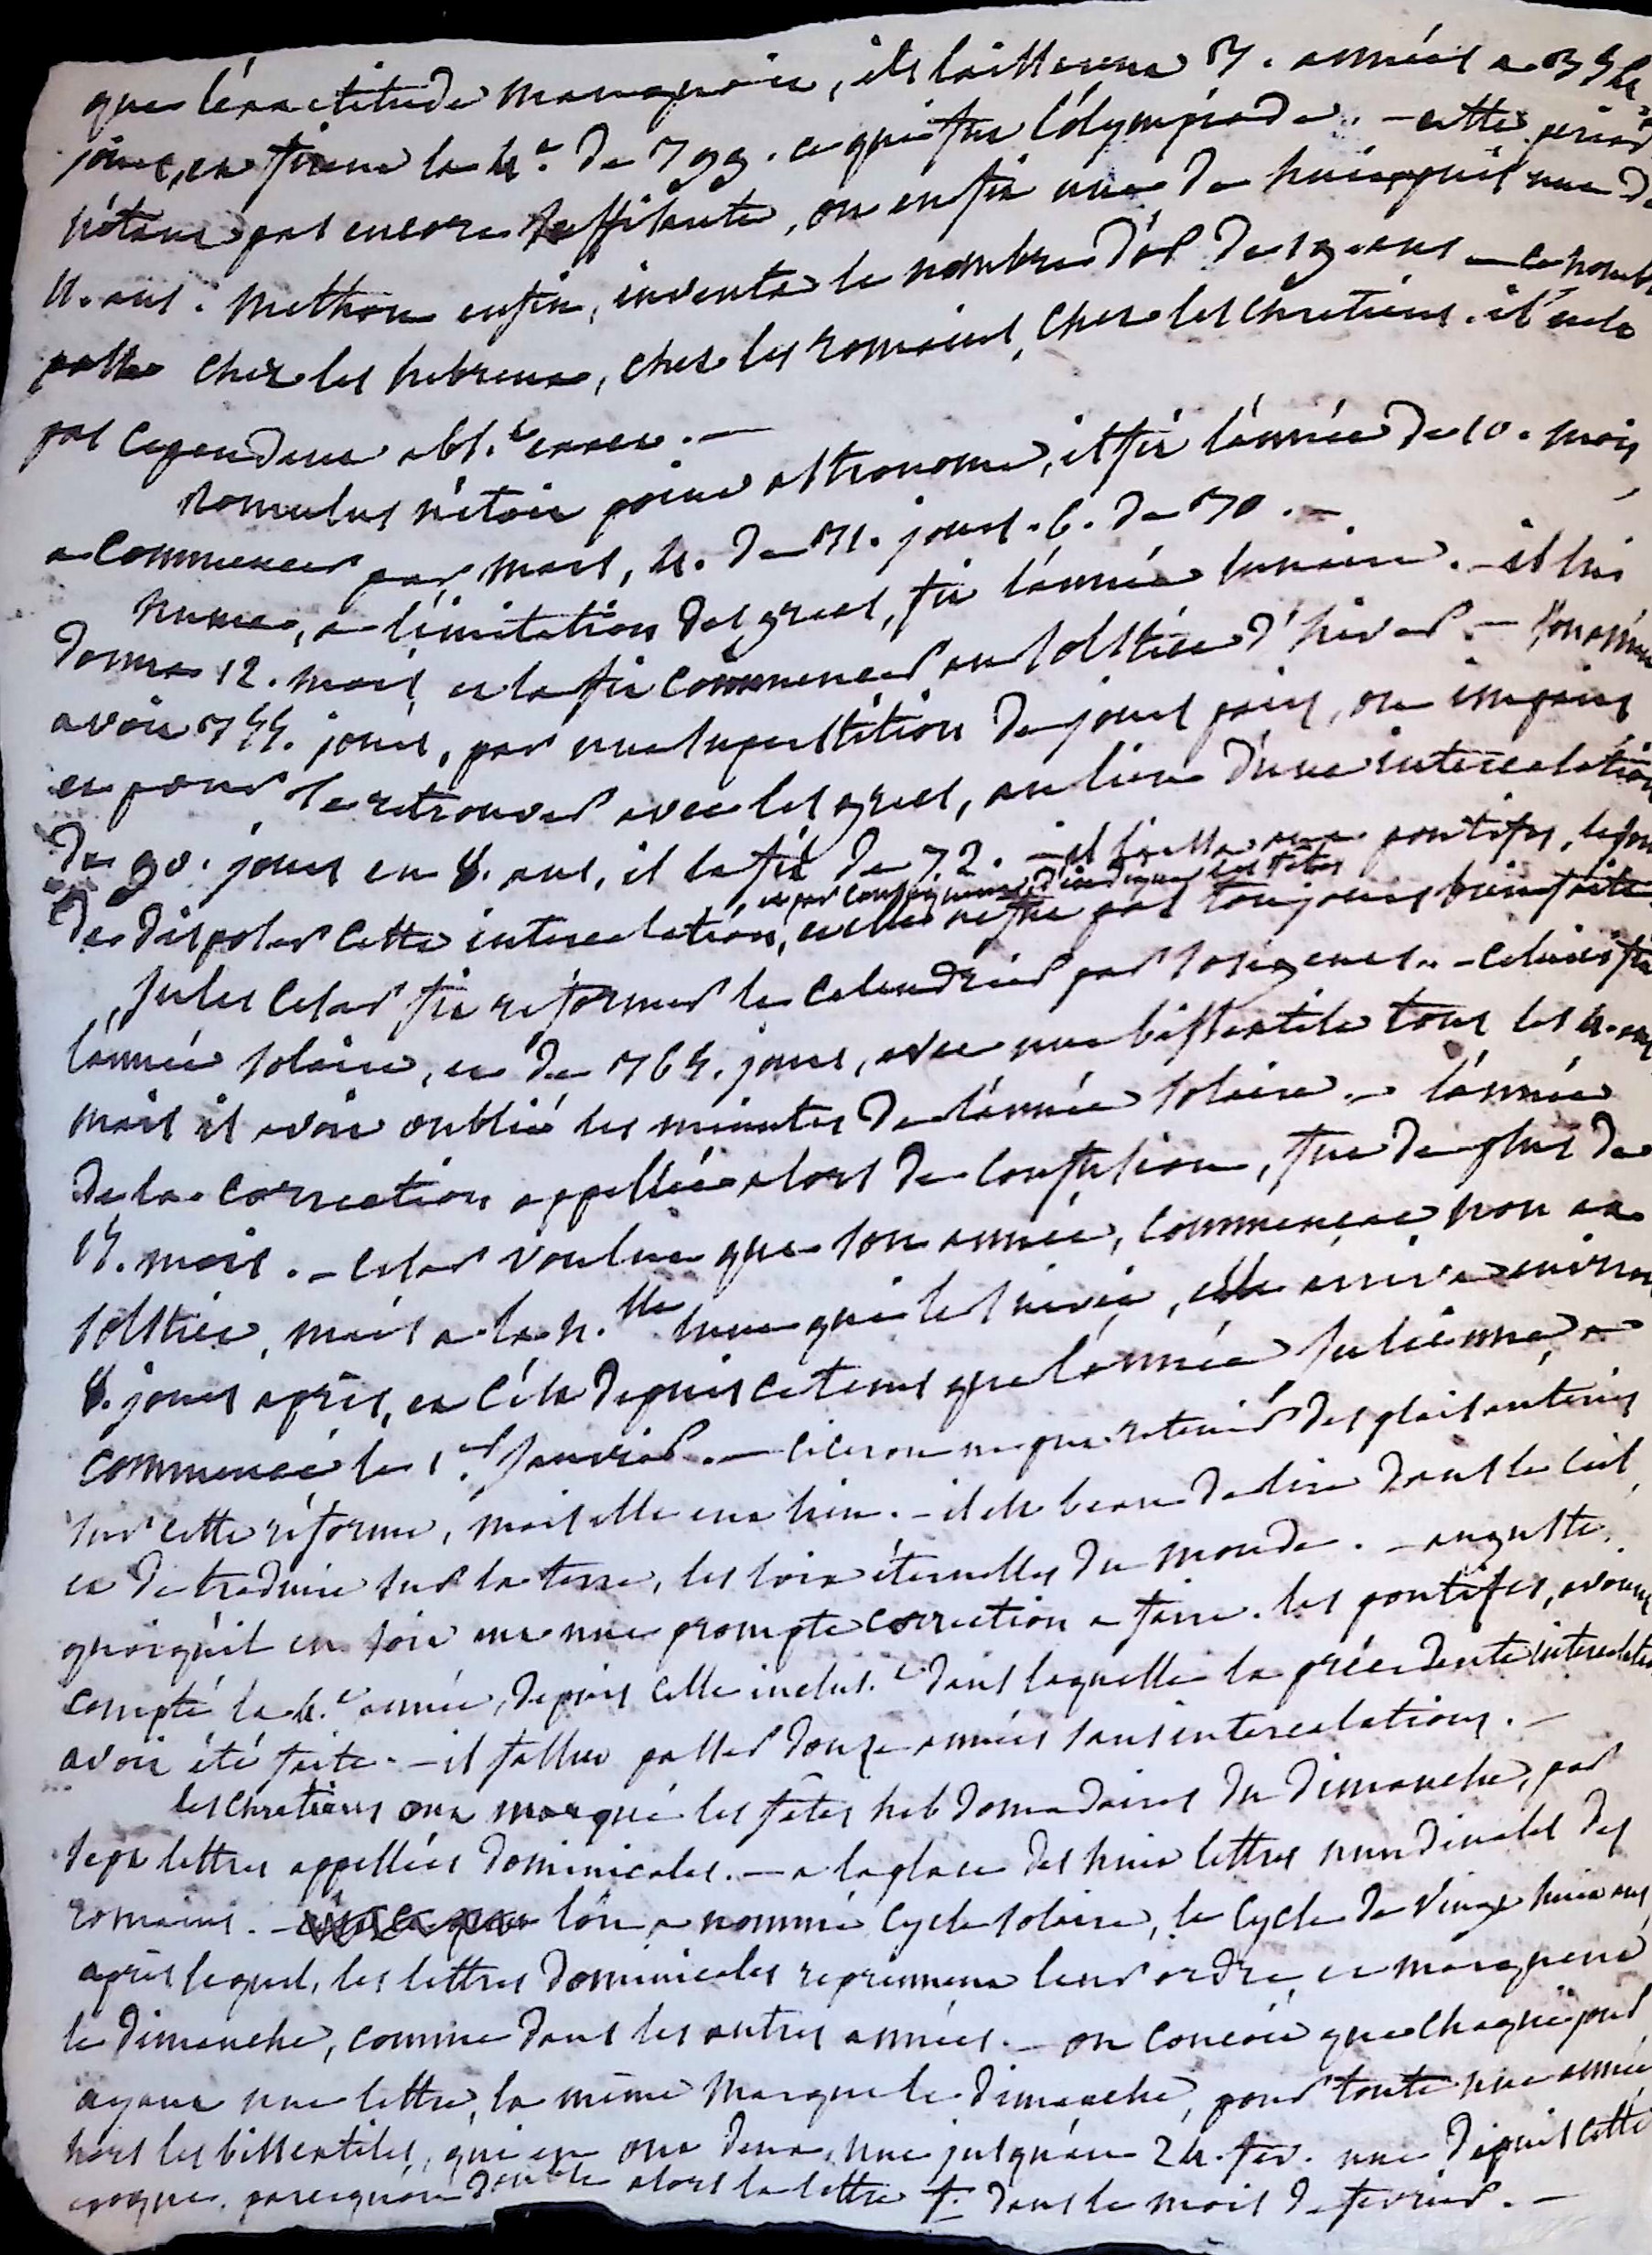 que l'exactitude manquoit, ils laisserent 3. années a 354
jours, et firent la 4.e de 399. ce qui fut l'olympiade. - cette periode
n'étant pas encore suffisante, on en fit une de huit, puis une de
11. ans. Methon enfin, inventa le nombre d'or de 19 ans - ce nombre
passa chez les hebreux, chez les romains, chez les chretiens. il n'est
pas cependant abs.t exact. -
Romulus n'étoit point astronome, il fit l'année de 10. mois,
a commencer par mars, 4. de 31. jours. 6. de 30. -
Numa, a l'imitation des grecs, fit l'année lunaire. - il lui
donna 12. mois, et la fit commencer au solstice d'hiver. - son année
avoit 355. jours, par une superstition de jours pairs, ou impairs
et pour se retrouver avec les grecs, au lieu d'une intercalation
de 90. jours en 8. ans, il la fit de 82. - il laissa aux pontifes, le soin
de disposer cette intercalation, et par consequent, d'indiquer les fêtes, et elle ne fut pas toujours bien faite
Jules Cesar fit reformer le calendrier par Sosigenes. - celui ci fit
l'année solaire, et de 365. jours, avec une bissextile tous les 4. ans,
mais il avoit oublié les minutes de l'année solaire. - l'année
de la correction appellée alors de confusion, fut de plus de
15. mois. - Cesar voulut que son année, commençat non au
solstice, mais a la n.lle lune qui le suivit, elle arriva environ
8. jours après, et c'est depuis ce tems que l'année Julienne a
commencé le 1.er Janvier. - Ciceron ne put retenir des plaisanteries
sur cette réforme, mais elle eut lieu. - il est beau de lire dans le ciel,
et de traduire sur la terre, les loix éternelles du monde. - auguste,
quoiqu'il en soit eut une prompte correction a faire. les pontifes, avoient
compté la 4.e année, depuis celle inclus.t dans laquelle la précedente intercalation
avoit été faite. - il fallut passer douze années sans intercalations. -
les chretiens ont marqué les fêtes hebdomadaires du dimanche, par
sept lettres appellées dominicales. - a la place des huit lettres nundinales des
romains. - l'on a nommé cycle solaire, le cycle de vingt huit ans
après lequel, les lettres dominicales reprennent leur ordre, et marquent
le dimanche, comme dans les autres années. - on conçoit que chaque jour
ayant une lettre, la même marque le dimanche, pour toute une année
hors les bissextiles, qui en ont deux, une jusqu'au 24. fev. une depuis cette
epoque. parcequ'on double alors la lettre f. dans le mois de fevrier. -